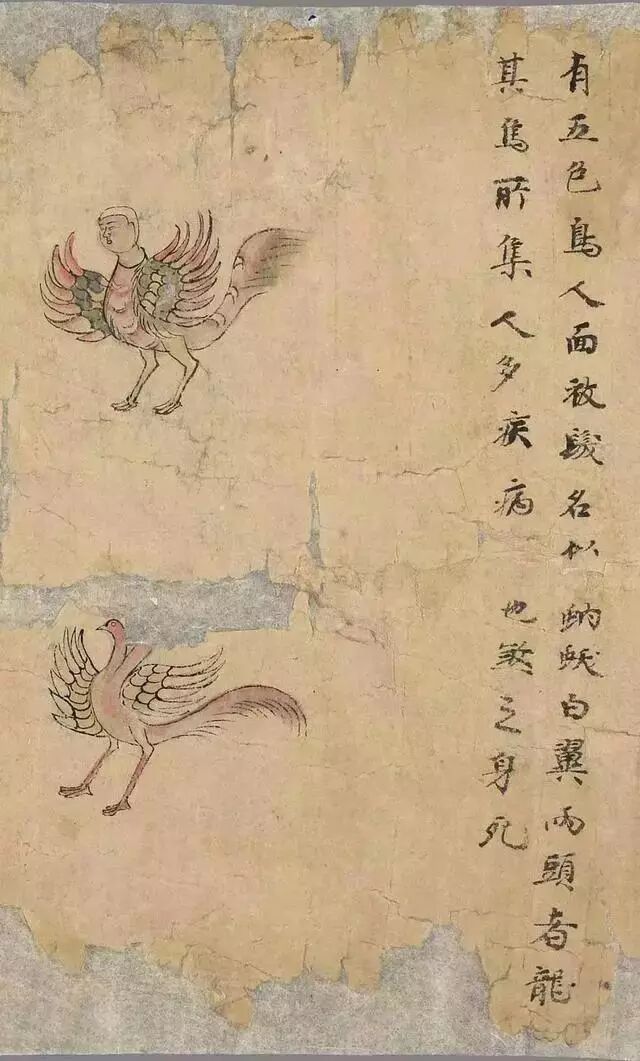 有五色鳥人面被髮名似
其鳥所集人多疾病
白翼兩頭者龍
也煞之身死